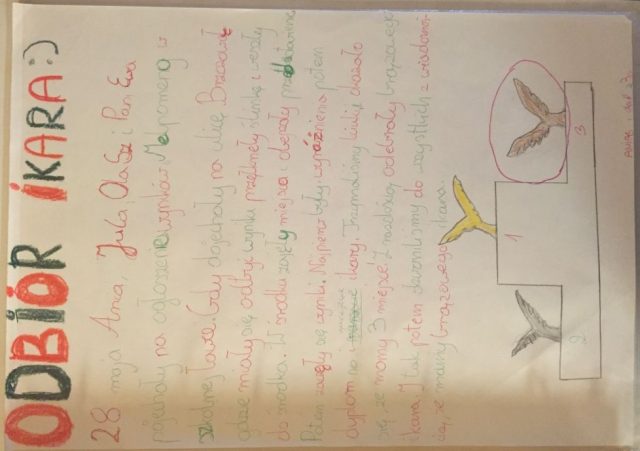 ODBIÓR IKARA :)
28 maja Ania, Jula, Ola Sz i Pan Ewa
pojechały na ogłoszenie wyników Melpomeny w
szkolnej ławce. Gdy dojechały na ulicę
gdzie miały się odbyć wyniki i weszły
do środka. W środku zajęły miejsca i
Potem zaczęły się wyniki. Najpierw były wyróżnienia potem
dyplom no i miejsce ikary. Trzymaliśmy kciuki okazało
się, że mamy 3 miejsce. Z radością odebrały brązowego
ikara. I tak potem dzwoniliśmy do wszystkich z wiadomoś-
cią, że mamy brązowego ikara.
2
1
3